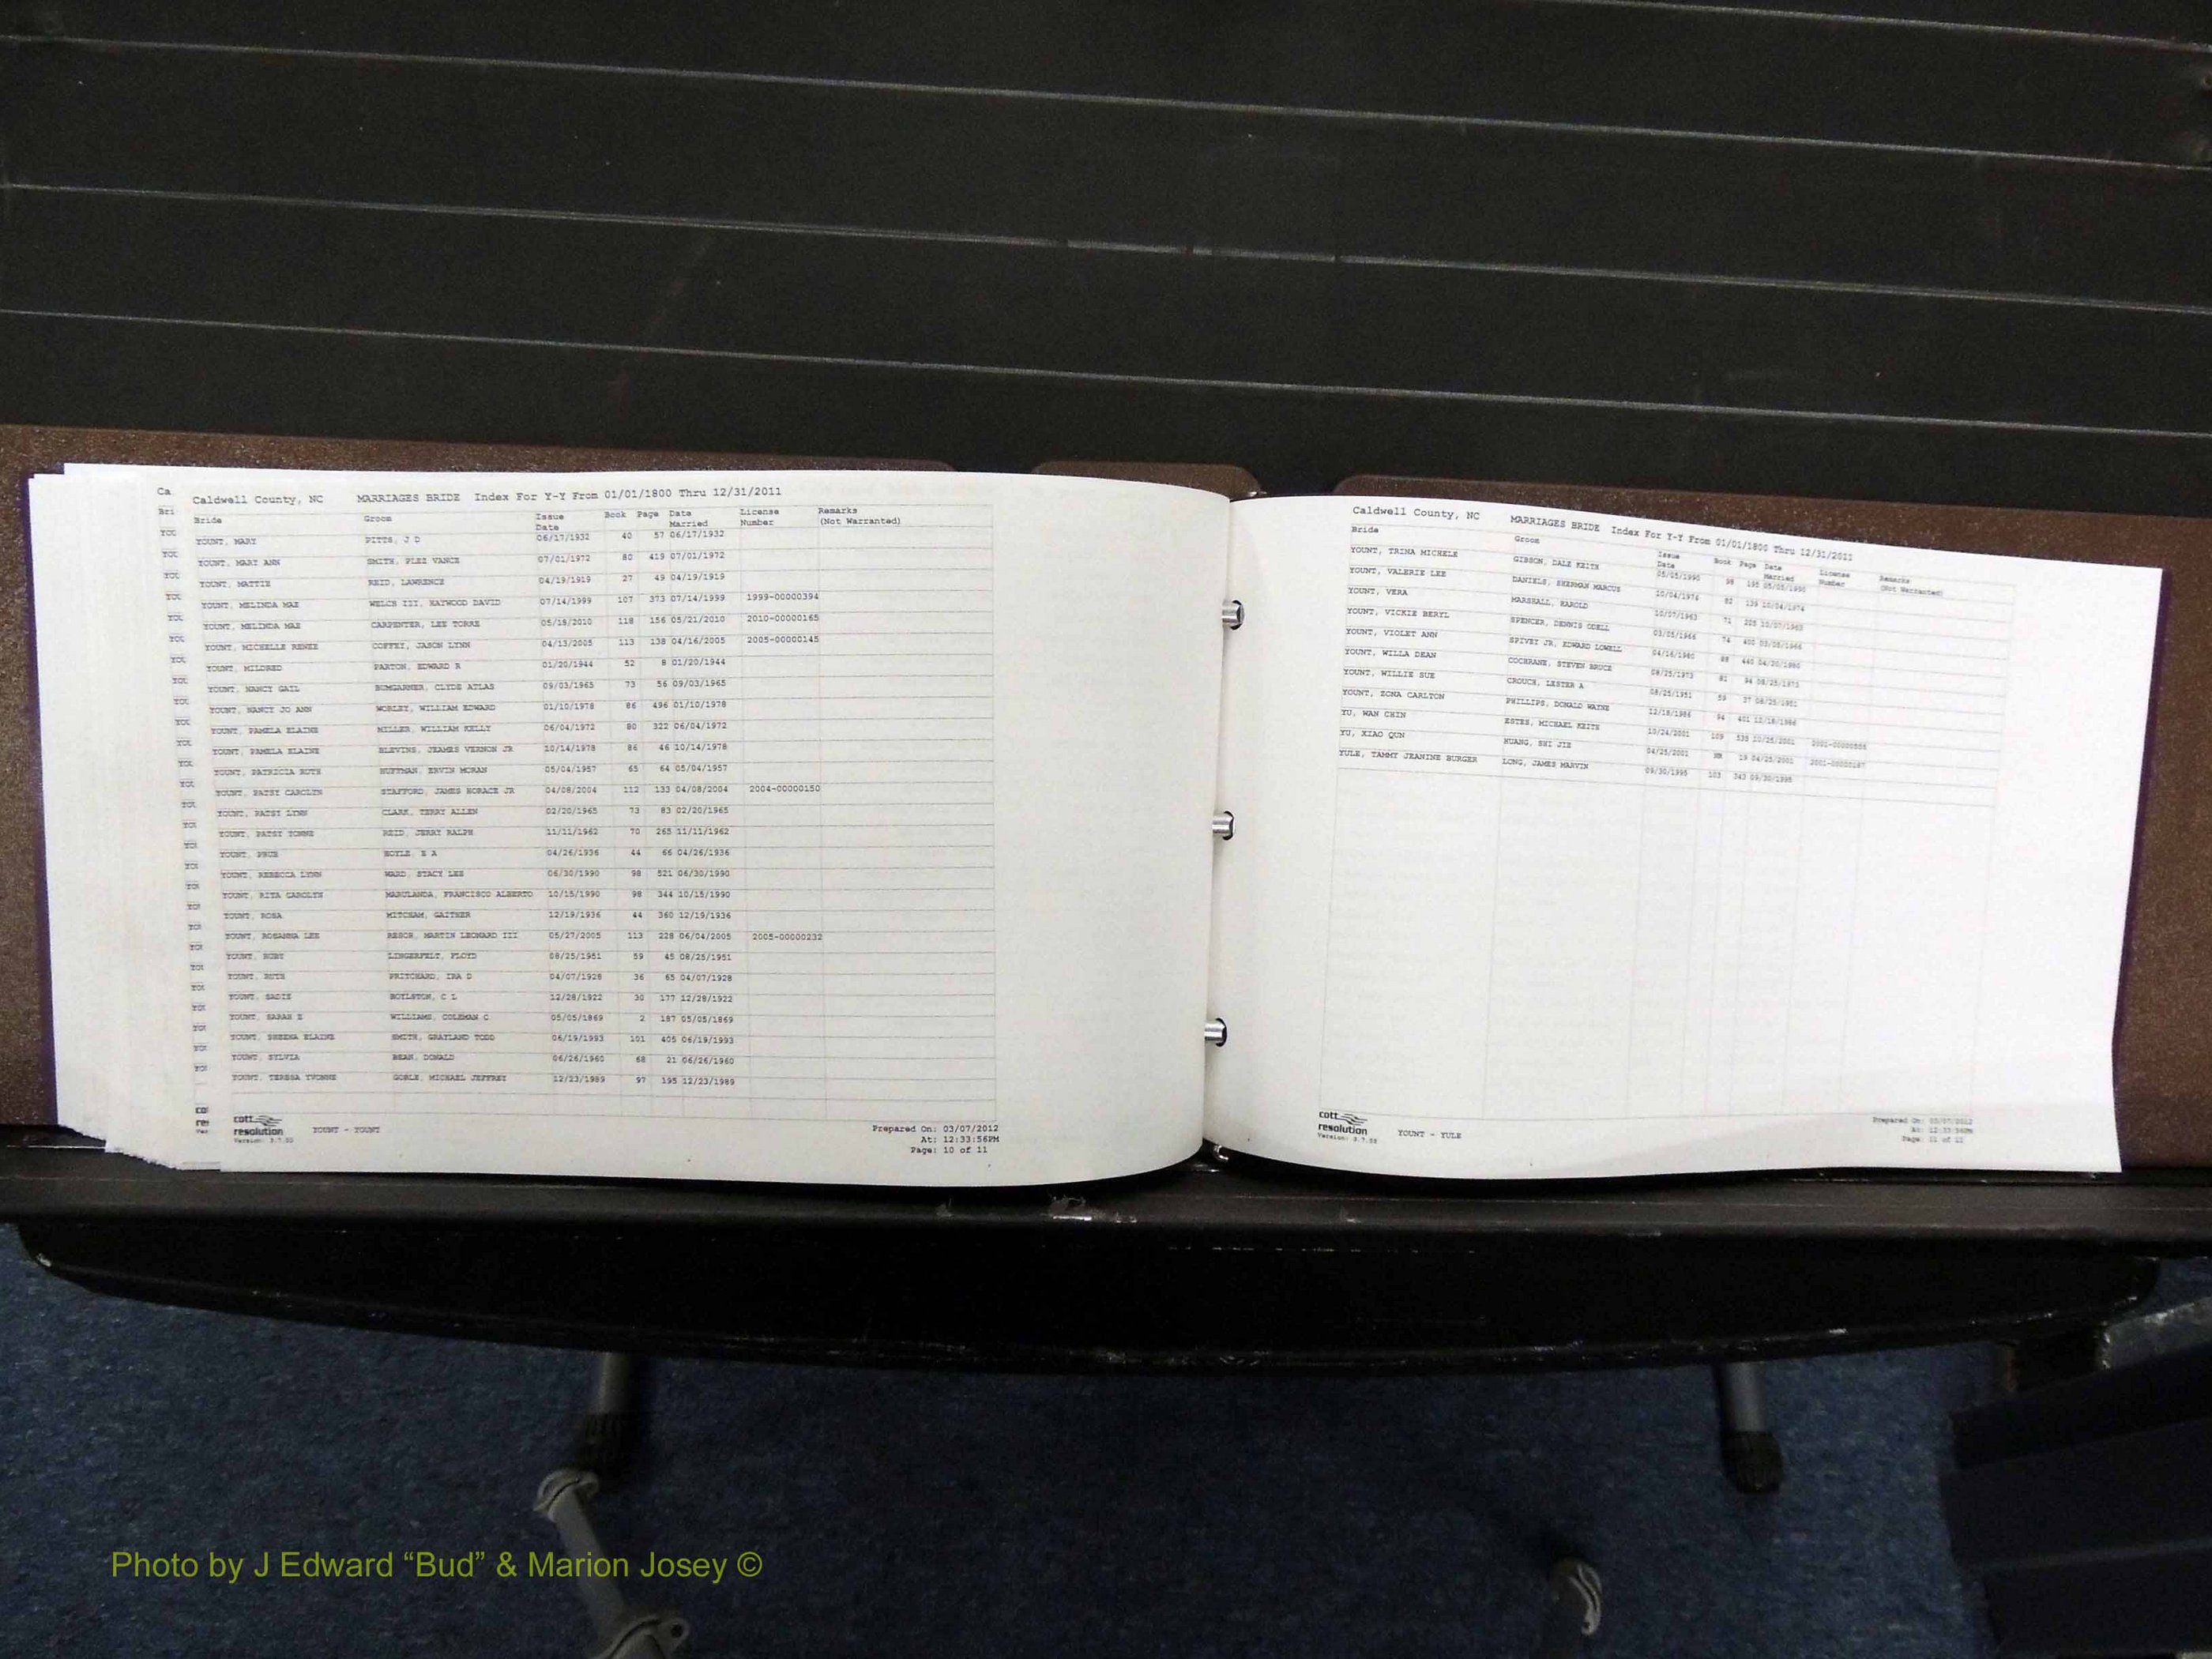 Ca
Bri
Caldwell County, NC MARRIAGES BRIDE Index For Y-Y From 01/01/1800 Thru 12/31/2011
Bride Groom Issue Date Book Page Date Married License Number Remarks (Not Warranted)
YOUNT, MARY PITTS, J D 06/17/1932 40 57 06/17/1932
YOUNT, MARY ANN SMITH, PLEZ VANCE 07/01/1972 80 419 07/01/1972
YOUNT, MATTIE REID, LAWRENCE 04/19/1919 27 49 04/19/1919
YOUNT, MELINDA MAE WELCH III, HAYWOOD DAVID 07/14/1999 107 373 07/14/1999 1999-00000394
YOUNT, MELINDA MAE CARPENTER, LEE TORRE 05/18/2010 118 156 05/21/2010 2010-00000165
YOUNT, MICHELLE RENEE COFFEY, JASON LYNN 04/13/2005 113 138 04/16/2005 2005-00000145
YOUNT, MILDRED PARTON, EDWARD R 01/20/1944 52 8 01/20/1944
YOUNT, NANCY GAIL BUMGARNER, CLYDE ATLAS 09/03/1965 73 56 09/03/1965
YOUNT, NANCY JO ANN WORLEY, WILLIAM EDWARD 01/10/1978 86 496 01/10/1978
YOUNT, PAMELA ELAINE MILLER, WILLIAM KELLY 06/04/1972 80 322 06/04/1972
YOUNT, PAMELA ELAINE BLEVINS, JEAMES VERNON JR 10/14/1978 86 46 10/14/1978
YOUNT, PATRICIA RUTH HUFFMAN, ERVIN MORAN 05/04/1957 65 64 05/04/1957
YOUNT, PATSY CAROLYN STAFFORD, JAMES HORACE JR 04/08/2004 112 133 04/08/2004 2004-00000150
YOUNT, PATSY LYNN CLARK, TERRY ALLEN 02/20/1965 73 83 02/20/1965
YOUNT, PATSY YONNE REID, JERRY RALPH 11/11/1962 70 265 11/11/1962
YOUNT, PRUE BOYLE, E A 04/26/1936 44 66 04/26/1936
YOUNT, REBECCA LYNN WARD, STACY LEE 06/30/1990 98 521 06/30/1990
YOUNT, RITA CAROLYN MARULANDA, FRANCISCO ALBERTO 10/15/1990 98 344 10/15/1990
YOUNT, ROSA MITCHAM, GAITHER 12/19/1936 44 360 12/19/1936
YOUNT, ROSANNA LEE RESOR, MARTIN LEONARD III 05/27/2005 113 228 06/04/2005 2005-00000232
YOUNT, RUBY LINGERFELT, FLOYD 08/25/1951 59 45 08/25/1951
YOUNT, RUTH PRITCHARD, IRA D 04/07/1928 36 65 04/07/1928
YOUNT, SADIE BOYLSTON, C L 12/28/1922 30 177 12/28/1922
YOUNT, SARAH E WILLIAMS, COLEMAN C 05/05/1869 2 187 05/05/1869
YOUNT, SHEENA ELAINE SMITH, GRAYLAND TODD 06/19/1993 101 405 06/19/1993
YOUNT, SYLVIA BEAN, DONALD 06/26/1960 68 21 06/26/1960
YOUNT, TERESA YVONNE GOBLE, MICHAEL JEFFREY 12/23/1989 97 195 12/23/1989
cott resolution
Version: 3.7.50
YOUNT - YOUNT
Prepared On: 03/07/2012
At: 12:33:56PM
Page: 10 of 11
Caldwell County, NC MARRIAGES BRIDE Index For Y-Y From 01/01/1800 Thru 12/31/2011
Bride Groom Issue Date Book Page Date Married License Number Remarks (Not Warranted)
YOUNT, TRINA MICHELE GIBSON, DALE KEITH 05/05/1990 98 195 05/05/1990
YOUNT, VALERIE LEE DANIELS, SHERMAN MARCUS 10/04/1974 82 139 10/04/1974
YOUNT, VERA MARSHALL, HAROLD 10/07/1963 71 205 10/07/1963
YOUNT, VICKIE BERYL SPENCER, DENNIS ODELL 03/05/1966 74 400 03/05/1966
YOUNT, VIOLET ANN SPIVEY JR, EDWARD LOWELL 04/16/1980 88 440 04/20/1980
YOUNT, WILLA DEAN COCHRANE, STEVEN BRUCE 08/25/1973 81 94 08/25/1973
YOUNT, WILLIE SUE CROUCH, LESTER A 08/25/1951 59 37 08/25/1951
YOUNT, ZONA CARLTON PHILLIPS, DONALD WAYNE 12/18/1986 94 401 12/18/1986
YU, WAN CHIN ESTES, MICHAEL KEITH 10/24/2001 109 535 10/25/2001
YU, XIAO QUN HUANG, SHI JIE 04/25/2001 19 04/25/2001
YULE, TAMMY JEANINE BURGER LONG, JAMES MARVIN 09/30/1995 103 343 09/30/1995
cott resolution
YOUNT - YULE
Prepared On: 03/07/2012
At: 12:33:56PM
Page: 11 of 11
Photo by J Edward “Bud” & Marion Josey ©